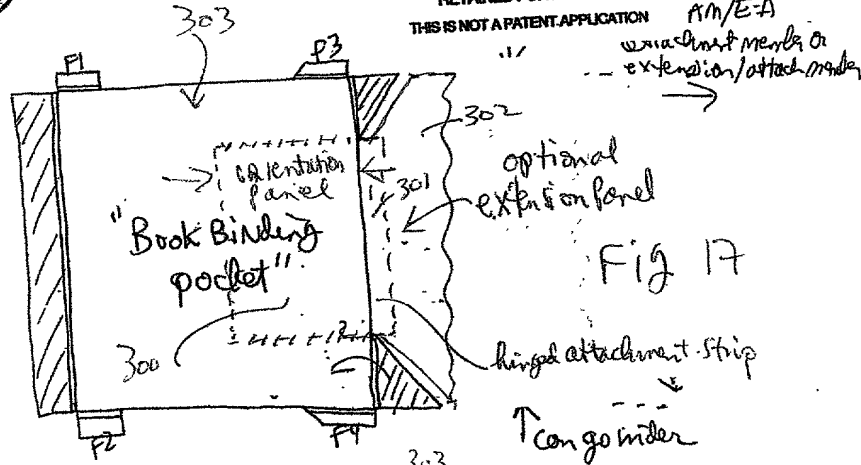 303
THIS IS NOT A PATENT APPLICATION
AM/E-A
extension/attach member
F1
F3
302
orientation
panel
301
optional
extension panel
"Book Binding
pocket"
Fig 17
300
hinged attachment strip
F2
F4
can go under
303